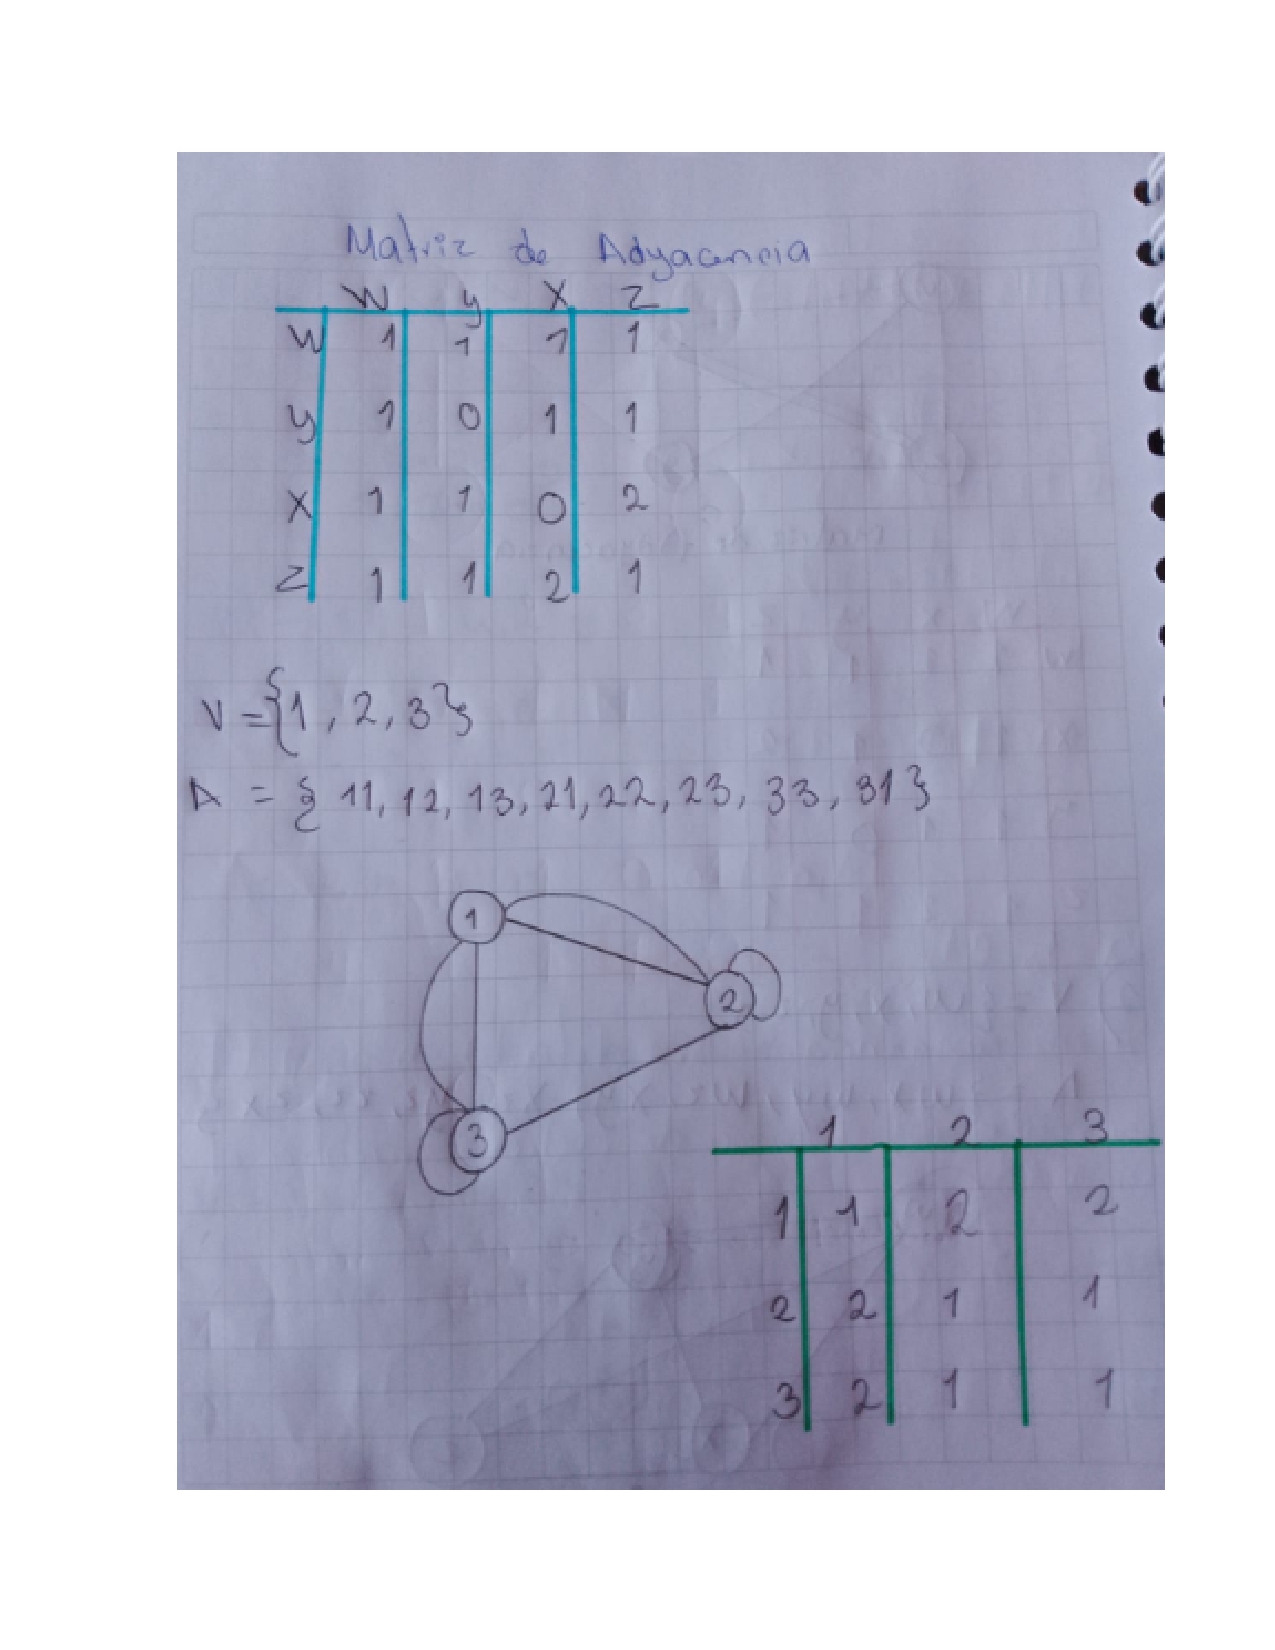 Matriz de Adyacencia
W y X Z
W 1 1 1 1
y 1 0 1 1
X 1 1 0 2
Z 1 1 2 1
V = {1, 2, 3}
A = { 11, 12, 13, 21, 22, 23, 33, 31 }
1
2
3
1 2 3
1 1 2 2
2 2 1 1
3 2 1 1